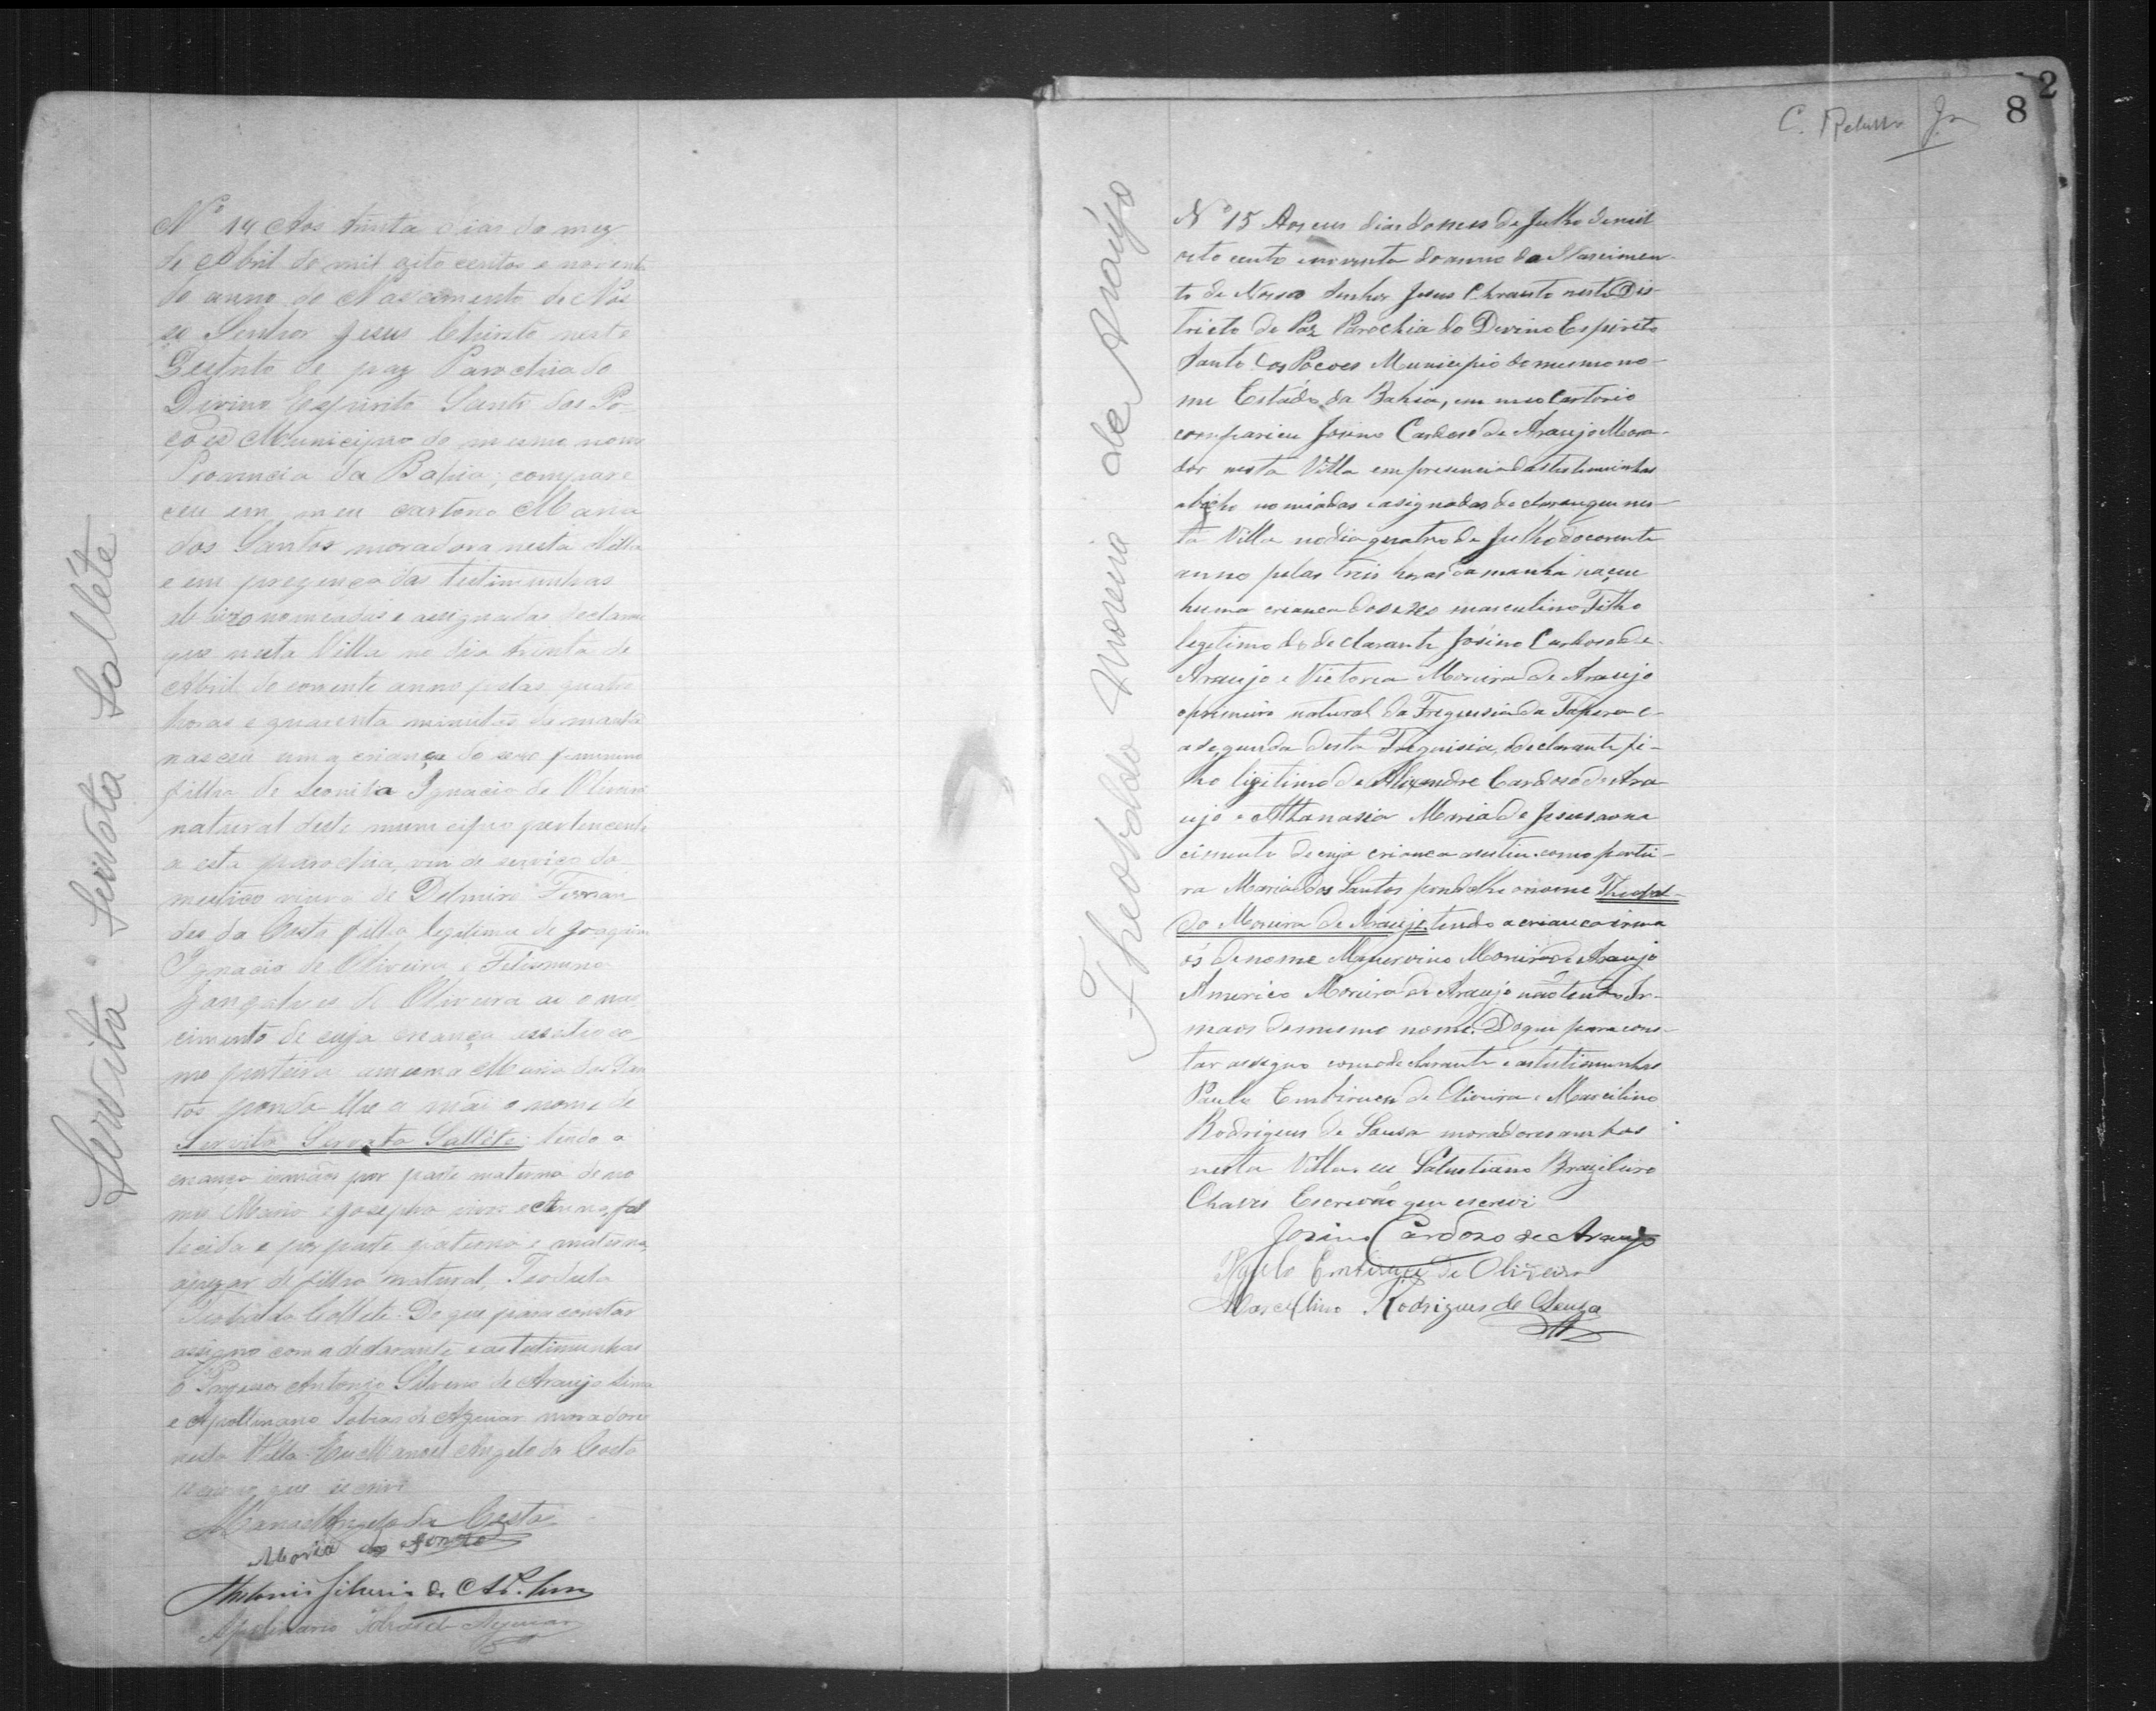 Servita Servata Salléte
Nº 14 Aos trinta dias do mez
de Abril de mil oito centos e noventa
do anno do Nascimento de Nos
so Senhor Jesus Christo neste
Destricto de paz Parochia do
Divino Espirito Santo dos Po-
ções Municipio do mesmo nome
Provincia da Bahia, compare
ceu em meu cartorio Maria
dos Santos moradora nesta Villa
e em prezença das testimunhas
abaixo nomeadas e assignadas, declarou
que nesta Villa no dia trinta de
Abril do corrente anno pelas quatro
horas e quarenta minutos da manhã
nasceu uma criança do sexo feminino
filha de Leonila Ignacia de Oliveira
natural deste municipio pertencente
a esta parochia, vive de serviço do
mestico viuva de Delmiro Fernan
des da Costa filha legitima de Joaquim
Ignacio de Oliveira e Felismina
Gonçalves de Oliveira ao o nas
cimento de cuja creança assistio co
mo parteira a mesma Maria dos San
tos pondo lhe a mãi o nome de
Servita Servata Salléte: tendo a
creança irmãos por parte materna de no
me Maria e Josepha vivas e Anna, fal
lecida e por parte paterna e materna,
apezar de filha natural,
Collete. Do que para constar
assigno com a declarante e as testimunhas
o Antonio Silverio de Araujo Lima
e Apollinario Tobias de Aguiar moradores
nesta Villa. Eu Manoel Angelo da Costa
escrivão que escrivi
Manoel Angelo da Costa
Maria dos Santos
Antonio Silverio de Ar.º Lima
Apolinario Tobias de Aguiar
C. Jr
2
8
Theobaldo Moreira de Araújo
Nº 15 Aos eus dias do mes de Julho de mil
oito cento e noventa do anno do Nascimen-
to de Nosso Senhor Jesus Christo neste Dis-
tricto de Paz Parochia do Divino Espirito
Santo dos Pocoes Municipio do mesmo no-
me Estado da Bahia, em meo Cartorio
compariceu Josino Cardoso de Araujo Mora-
dor nesta Villa em presencia das testemunhas
abicho nomiadas e asignadas declarou que nes-
ta Villa no dia quatro de Julho do corente
anno pelas treis horas da manhã naceu
huma crianca do sexo masculino Filho
legitimo do declarante Josino Cardoso de
Araujo e Victoria Moreira de Araujo
o primeiro natural da Freguesia da Tapera e
a segunda desta Freguisia, declarante fi-
lho ligitimo de Alixandre Cardoso de Ara
ujo e Athanasia Maria de Jesus ao na
cimento de cuja crianca asistiu como partei-
ra Maria dos Santos pondo lhe o nome Theobal-
do Moreira de Araujo, tendo a crianca irma
ós de nome Minervino Moreira de Araujo
Americo Moreira de Araujo não tendo Ir-
maos do mesmo nome. Do que para cons-
tar assigno com o declarante e as testimunhas
Paulo Embirucu de Oliveira e Marcilino
Rodrigues de Sousa moradores ambos
nesta Villa. eu Salustiano Brazileiro
Chaves Escrivão que escrevi
Josino Cardozo de Araujo
Paulo Embirucu de Oliveira
Marcellino Rodrigues de Souza